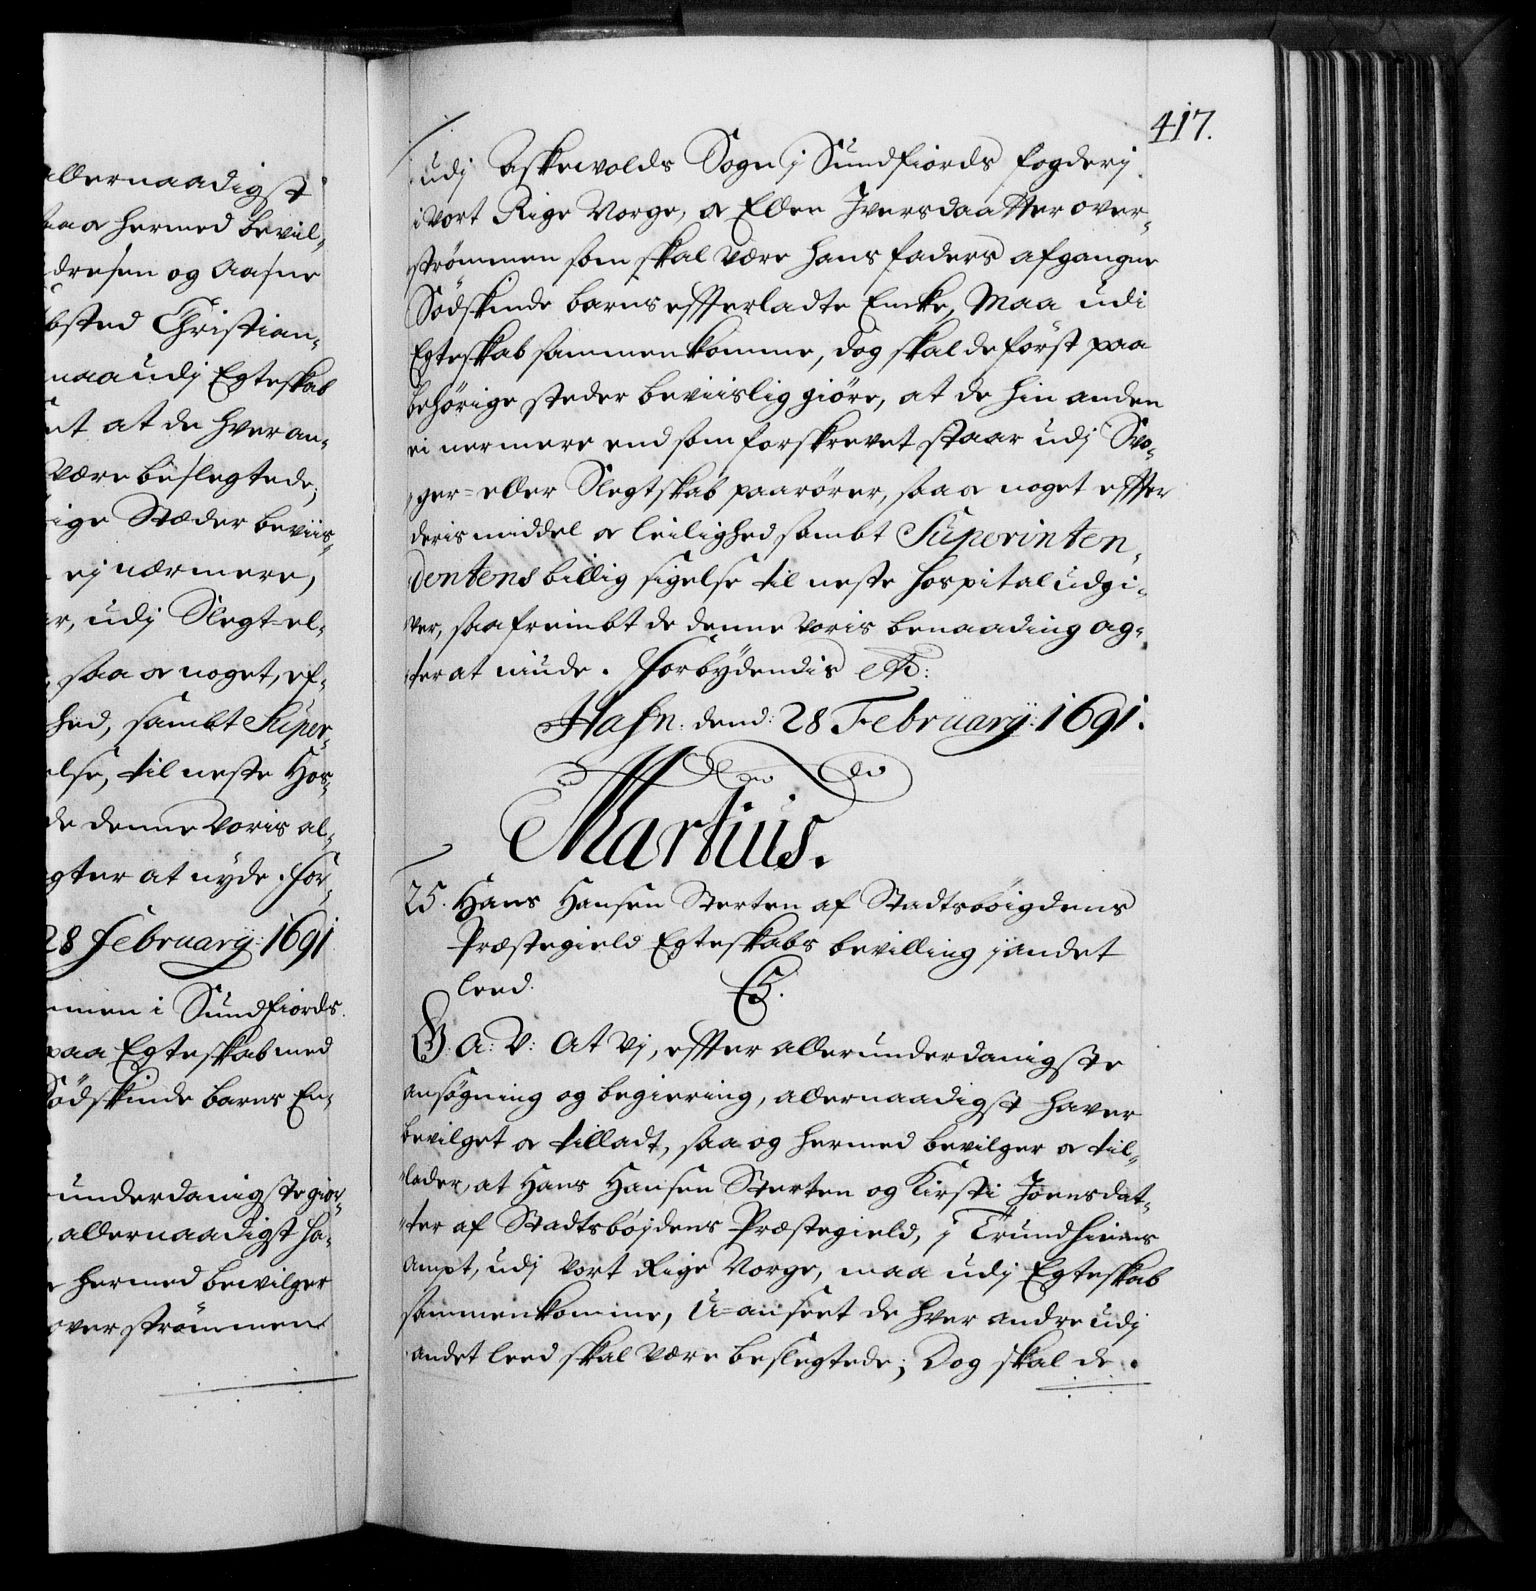 allernaadigst
saa og hermed bevil-
dresen og Aasne
bsted Christian-
maa udj Egteskab
at de hver an-
være beslegtede;
ige Stæder beviis-
ej nærmere,
r, udj Slegt= el-
saa og noget, ef-
hed, sambt Super-
else, til neste Hos-
de denne voris al-
gter at nyde. For-
28 Februarij: 1691
men i Sundfiords
paa Egteskab med
Södskinde barns En-
underdanigste giør-
allernaadigst ha-
hermed bewilger
overstrømmen
417.
udj Askewolds Sogn j Sundfiords fogderj
i vort Rige Norge, og Ellen Iversdaatter over-
strømmen som skal være hans faders afgangne
Södskinde barns effterladte Encke, Maa udi
Egteskab sammenkomme, dog skal de først paa
behørige steder beviislig giöre, at de hin anden
ei nermere end som forskrevet staar udj Svo-
ger= eller Slegtskab paarører, saa og noget effter
deris middel og leilighed sambt Superinten-
dentens billig sigelse til neste Hospital udgi-
ver, saafremt de denne voris benaading ag-
ter at niude. Forbydendis etc:
Hafn. dend: 28 Februarij: 1691.
Martius.
25. Hans Hansen Sterten af Stadtsbøigdens
Præstegield Egteskabs bevilling j andet
leed.
C5.
G. A: V: At Vj, effter allerunderdanigste
ansøgning og begiering, allernaadigst haver
bevilget og tilladt, saa og hermed bevilger og til-
lader, at Hans Hansen Sterten og Kirsti Joensdat-
ter af Stadtsbøjdens Præstegield, j Trundhiems
Ampt, udj vort Rige Norge, maa udj Egteskab
sammenkomme, U=anseet de hver andre udj
andet leed skal være beslegtede; Dog skal de